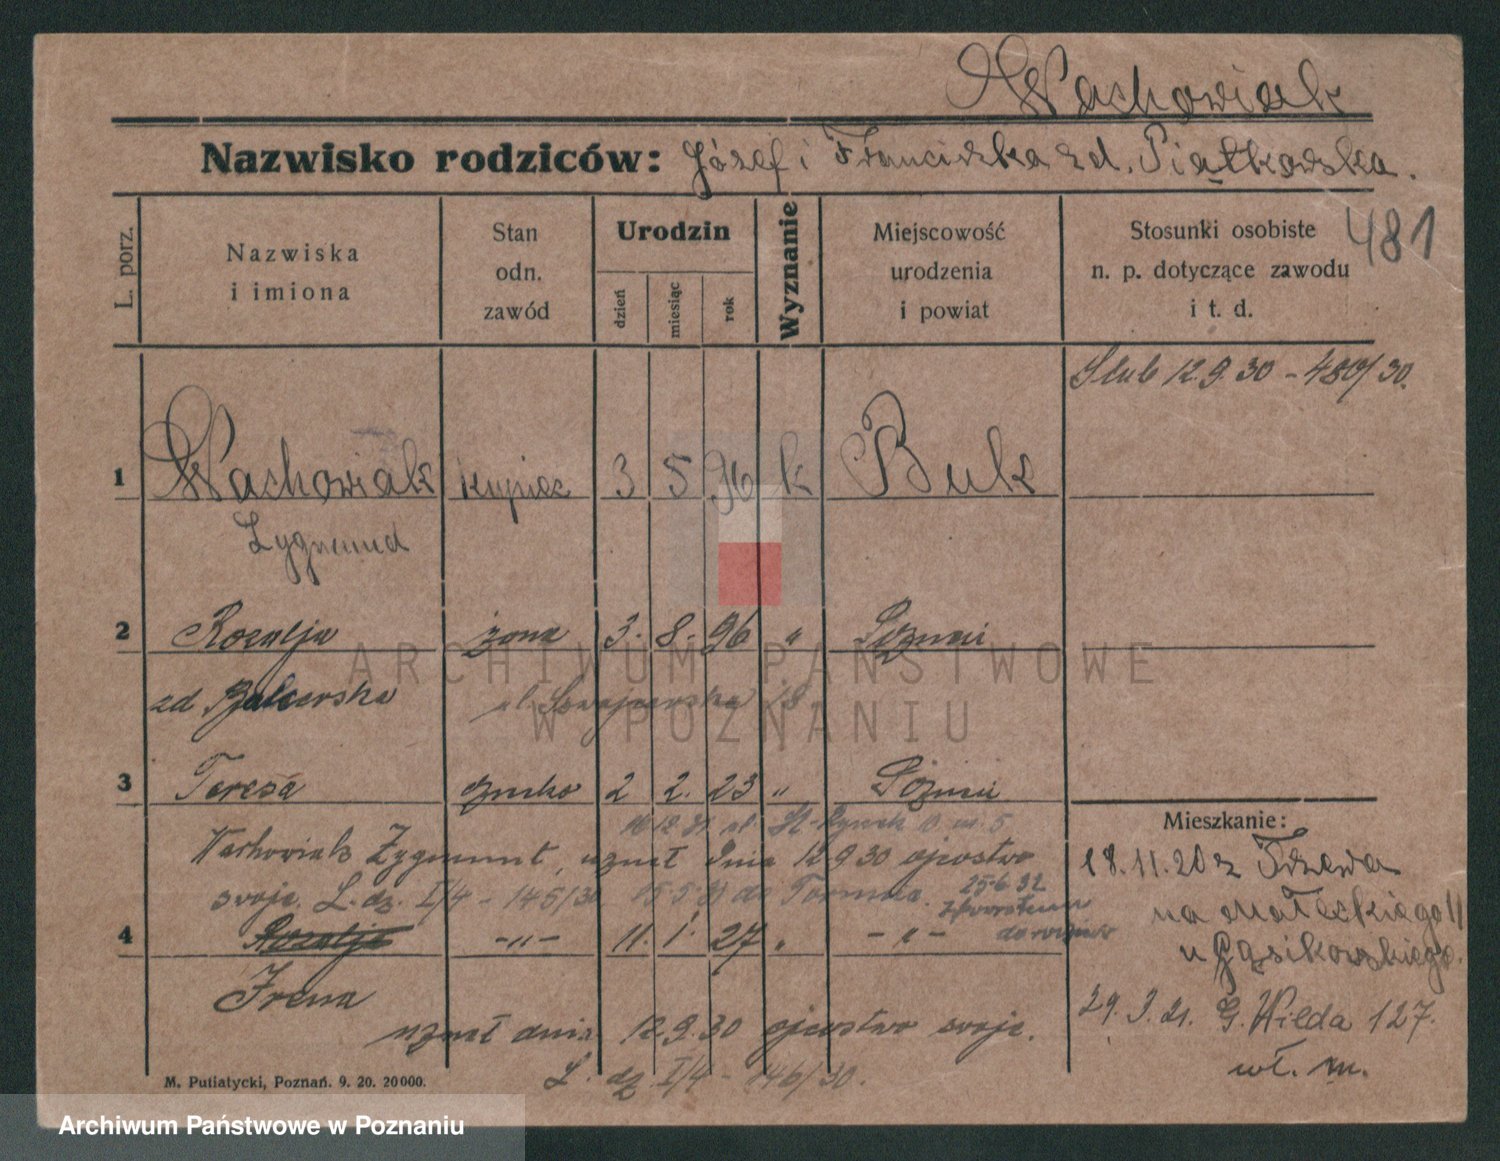 Wachowiak
Nazwisko rodziców: Józef i Franciszka zd. Piątkowska.
481
L. porz.
Nazwiska
i imiona
Stan
odn.
zawód
Urodzin
dzień
miesiąc
rok
Wyznanie
Miejscowość
urodzenia
i powiat
Stosunki osobiste
n. p. dotyczące zawodu
i t. d.
Ślub 12.9.30 – 480/30.
1 Wachowiak kupiec 3 5 96 k Buk
Zygmund
2 Rozalja żona 3. 8. 96 "
zd
3 Teresa 2 2. 23 "
Mieszkanie:
Wachowiak Zygmunt, uznał dnia 12 9 30 ojcostwo
swoje. L. dz. I/4 – 145/30 15.5.31 do 25.6.32
4 Rozalja –"– 11. 1. 27 " –"–
Irena
uznał dnia 12.9.30 ojcostwo swoje.
L. dz. I/4 – 146/30.
18.11.20 z
na Małeckiego 11
u Gąsikowskiego.
29. 3. 21. G. Wilda 127.
wł. m.
M. Putiatycki, Poznań. 9. 20. 20000.
ARCHIWUM PAŃSTWOWE
W POZNANIU
Archiwum Państwowe w Poznaniu